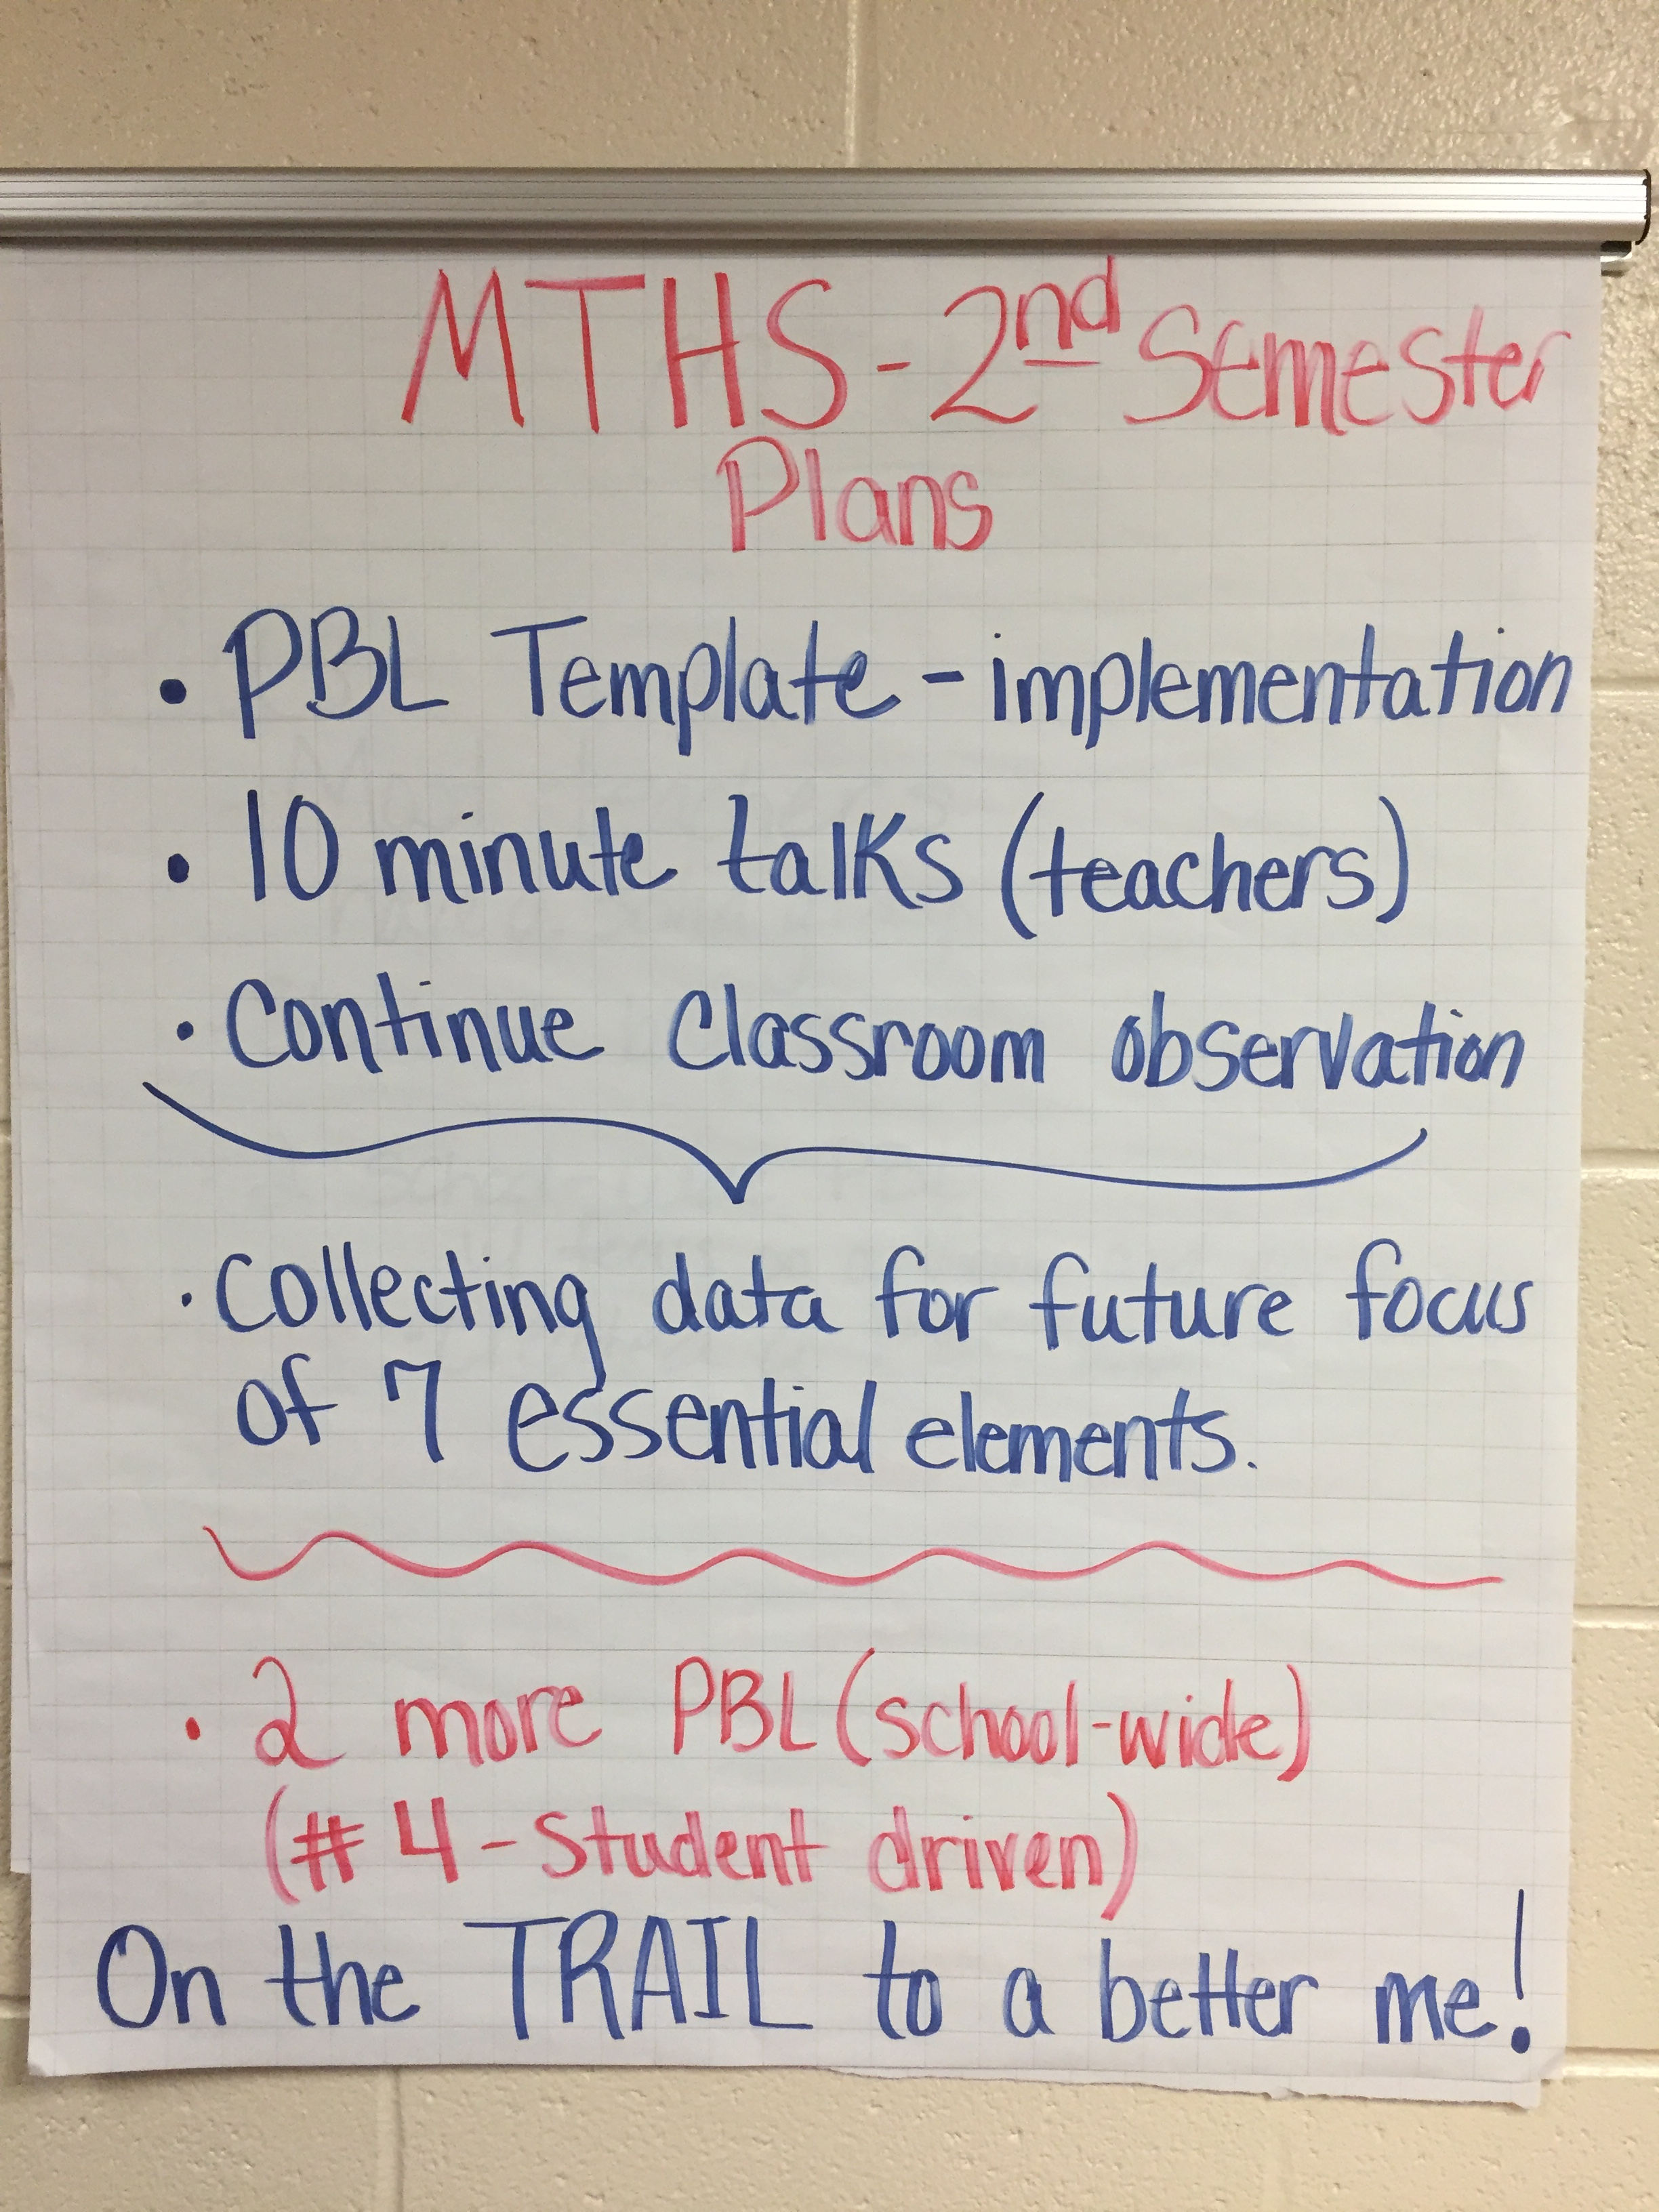 MTHS - 2nd Semester
Plans
• PBL Template - implementation
• 10 minute talks (teachers)
• Continue Classroom observation
• Collecting data for future focus
of 7 essential elements.
• 2 more PBL (school-wide)
(# 4 - Student driven)
On the TRAIL to a better me!